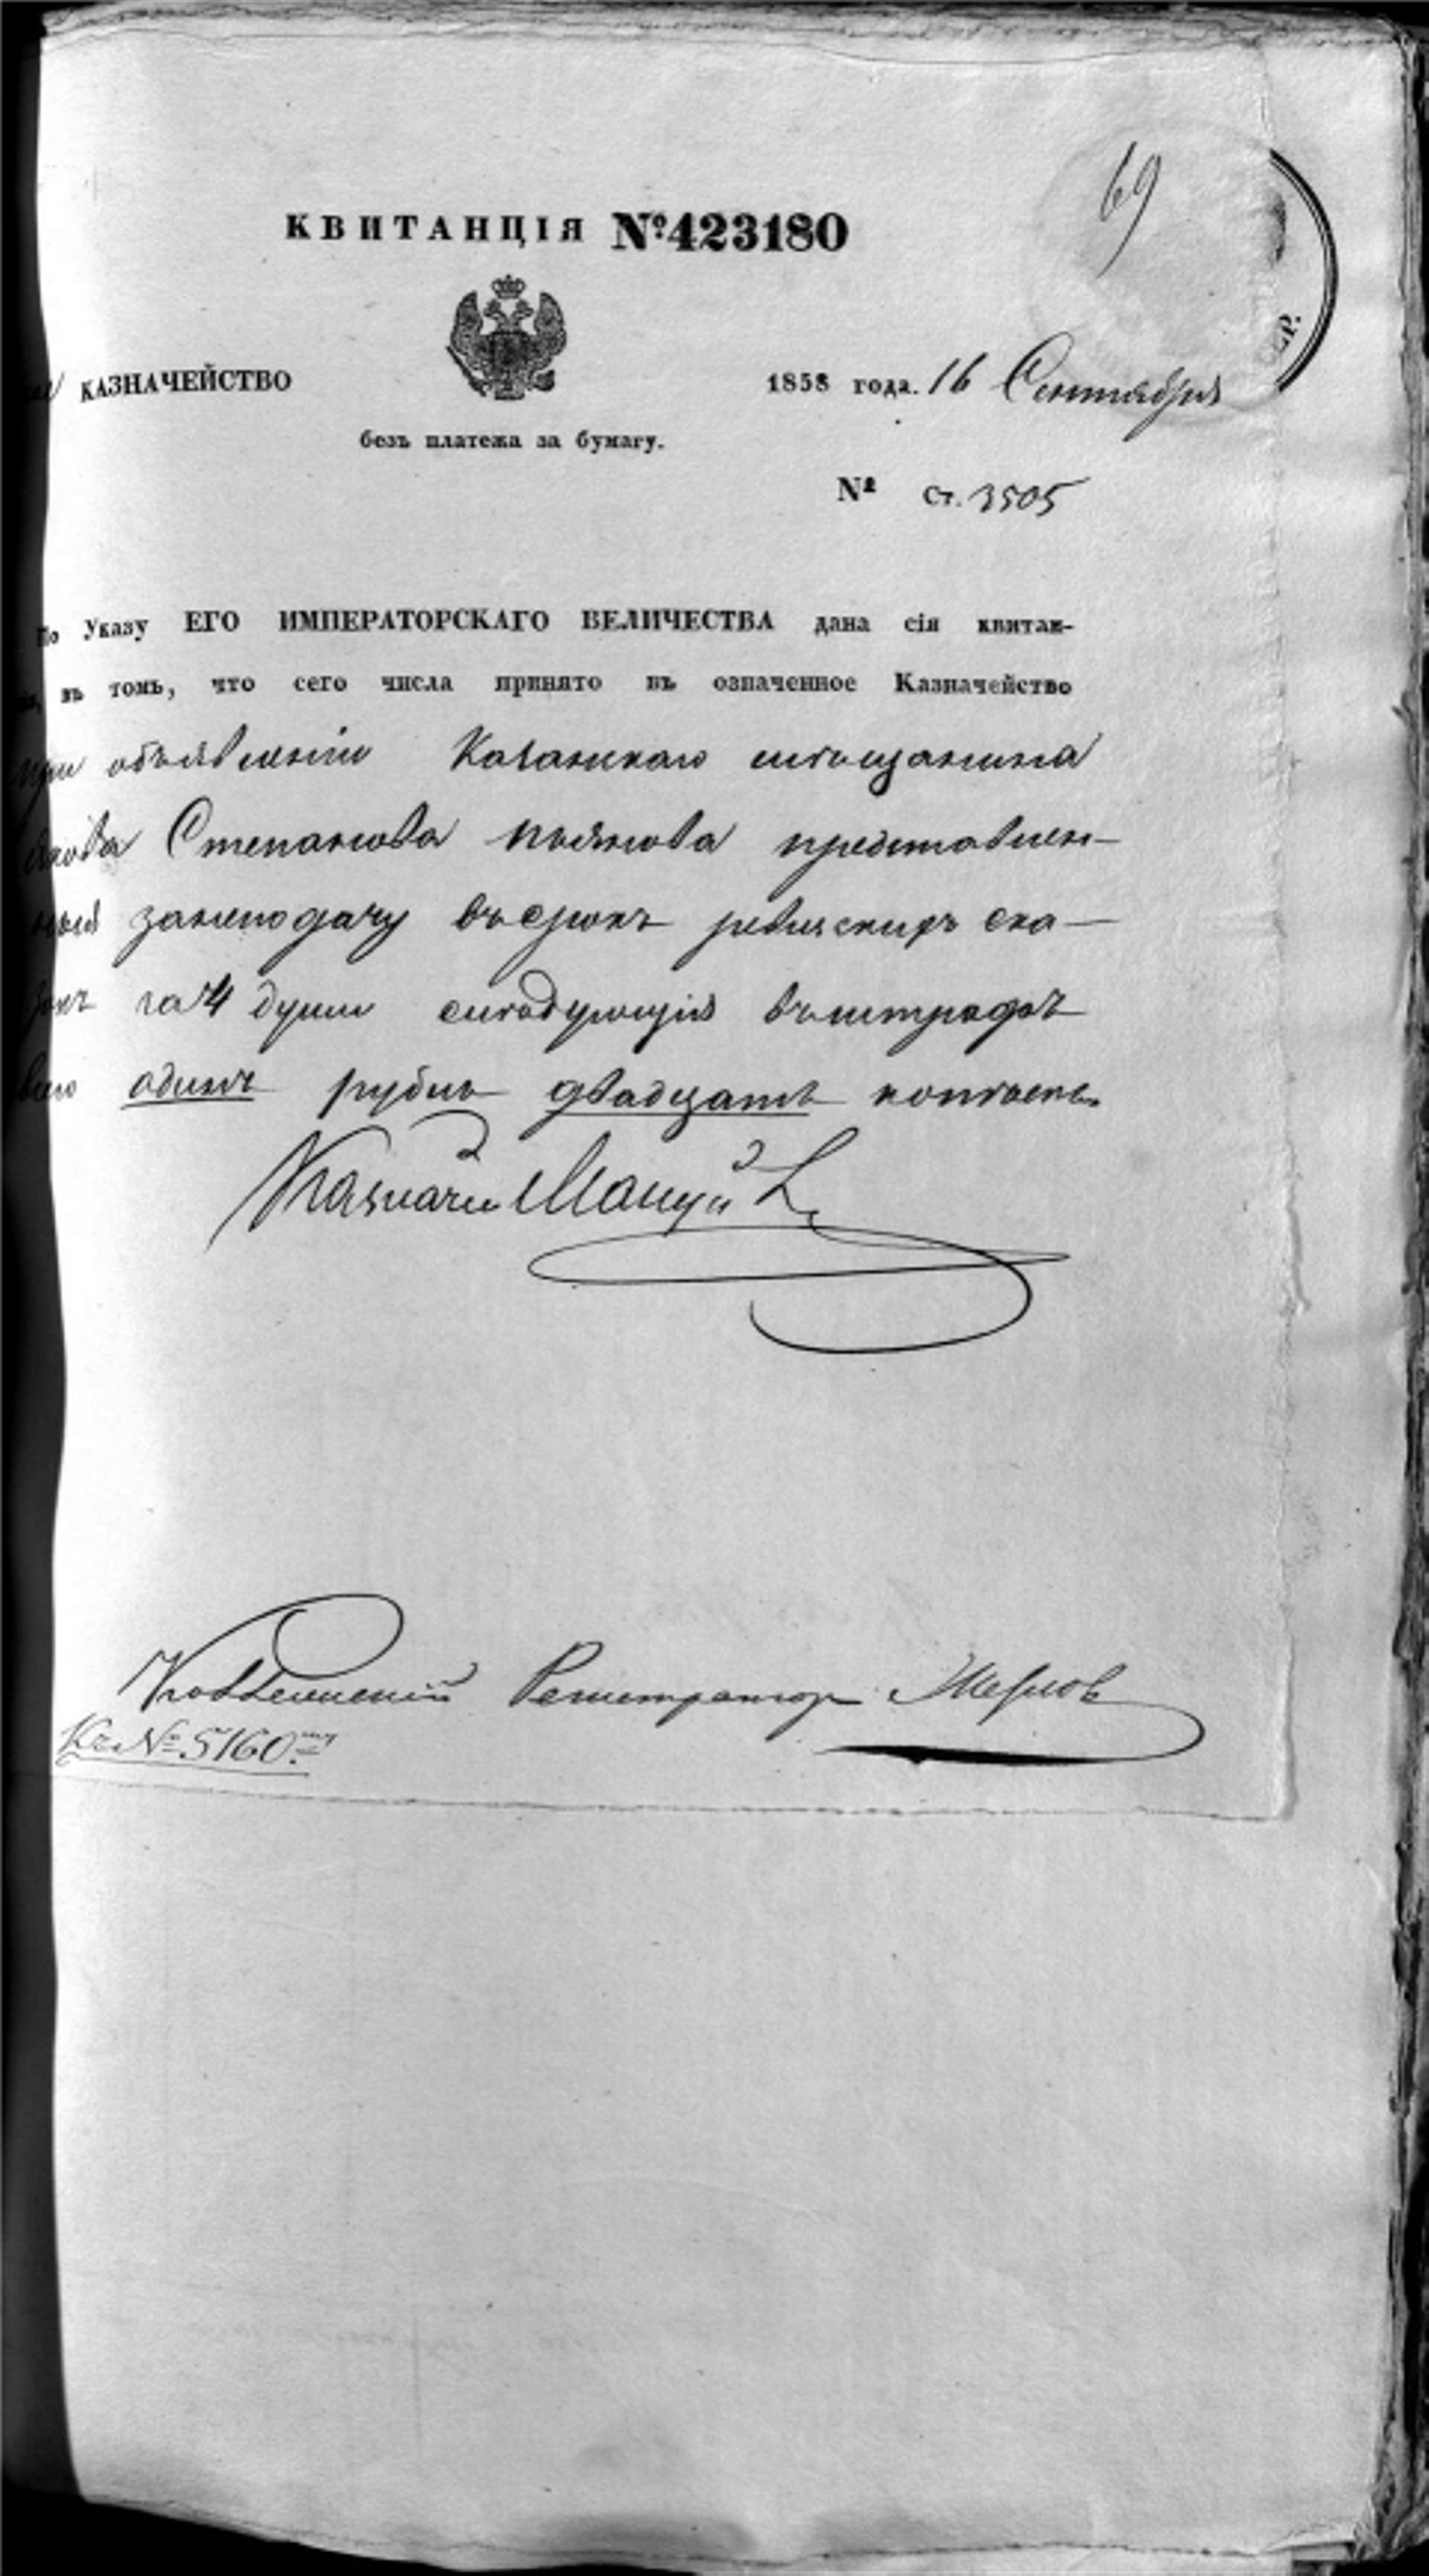 69
КВИТАНЦІЯ №423180
КАЗНАЧЕЙСТВО
1858 года. 16 Сентября
безъ платежа за бумагу.
№ Ст. 3505
По Указу ЕГО ИМПЕРАТОРСКАГО ВЕЛИЧЕСТВА дана сія квитан-
въ томъ, что сего числа принято въ означенное Казначейство
при объявленіи Казанскаго мѣщанина
Степанова Пьянкова представлен-
ныя занеподачу въсрокъ ревизскихъ ска-
зокъ за 4 души слѣдующія въштрафъ
всего одинъ рубль двадцать копѣекъ.
Казначей
Коллежскій Регистраторъ
Къ № 5160.му